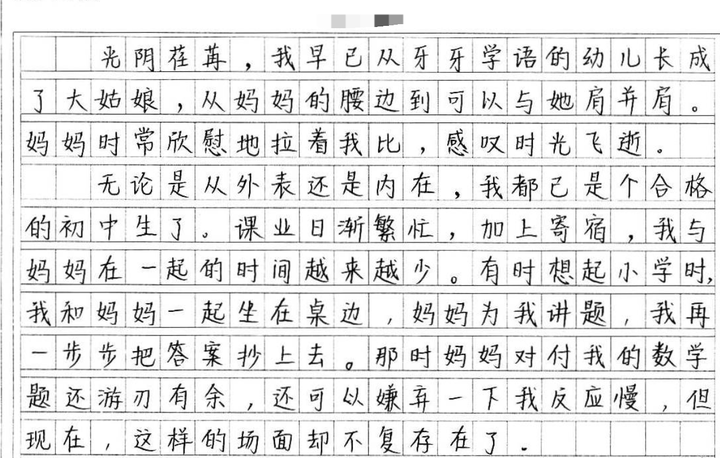 光阴荏苒，我早已从牙牙学语的幼儿长成
了大姑娘，从妈妈的腰边到可以与她肩并肩。
妈妈时常欣慰地拉着我比，感叹时光飞逝。
无论是从外表还是内在，我都已是个合格
的初中生了。课业日渐繁忙，加上寄宿，我与
妈妈在一起的时间越来越少。有时想起小学时，
我和妈妈一起坐在桌边，妈妈为我讲题，我再
一步步把答案抄上去。那时妈妈对付我的数学
题还游刃有余，还可以嫌弃一下我反应慢，但
现在，这样的场面却不复存在了.